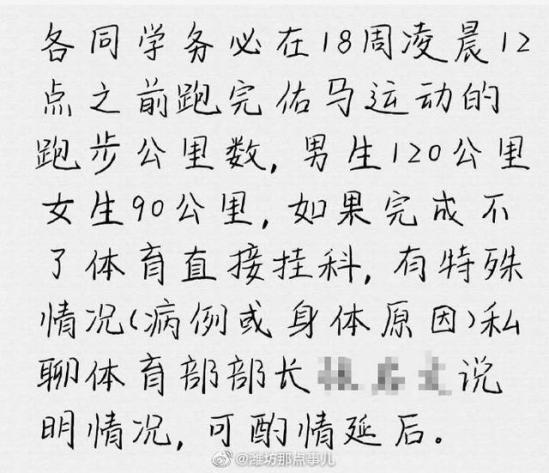 各同学务必在18周凌晨12
点之前跑完佑马运动的
跑步公里数,男生120公里
女生90公里,如果完成不
了体育直接挂科,有特殊
情况(病例或身体原因)私
聊体育部部长 说
明情况,可酌情延后。
@潍坊那点事儿